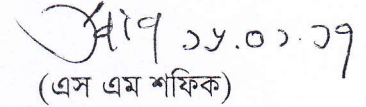 ১৫.০১.১৭
(এস এম শফিক)